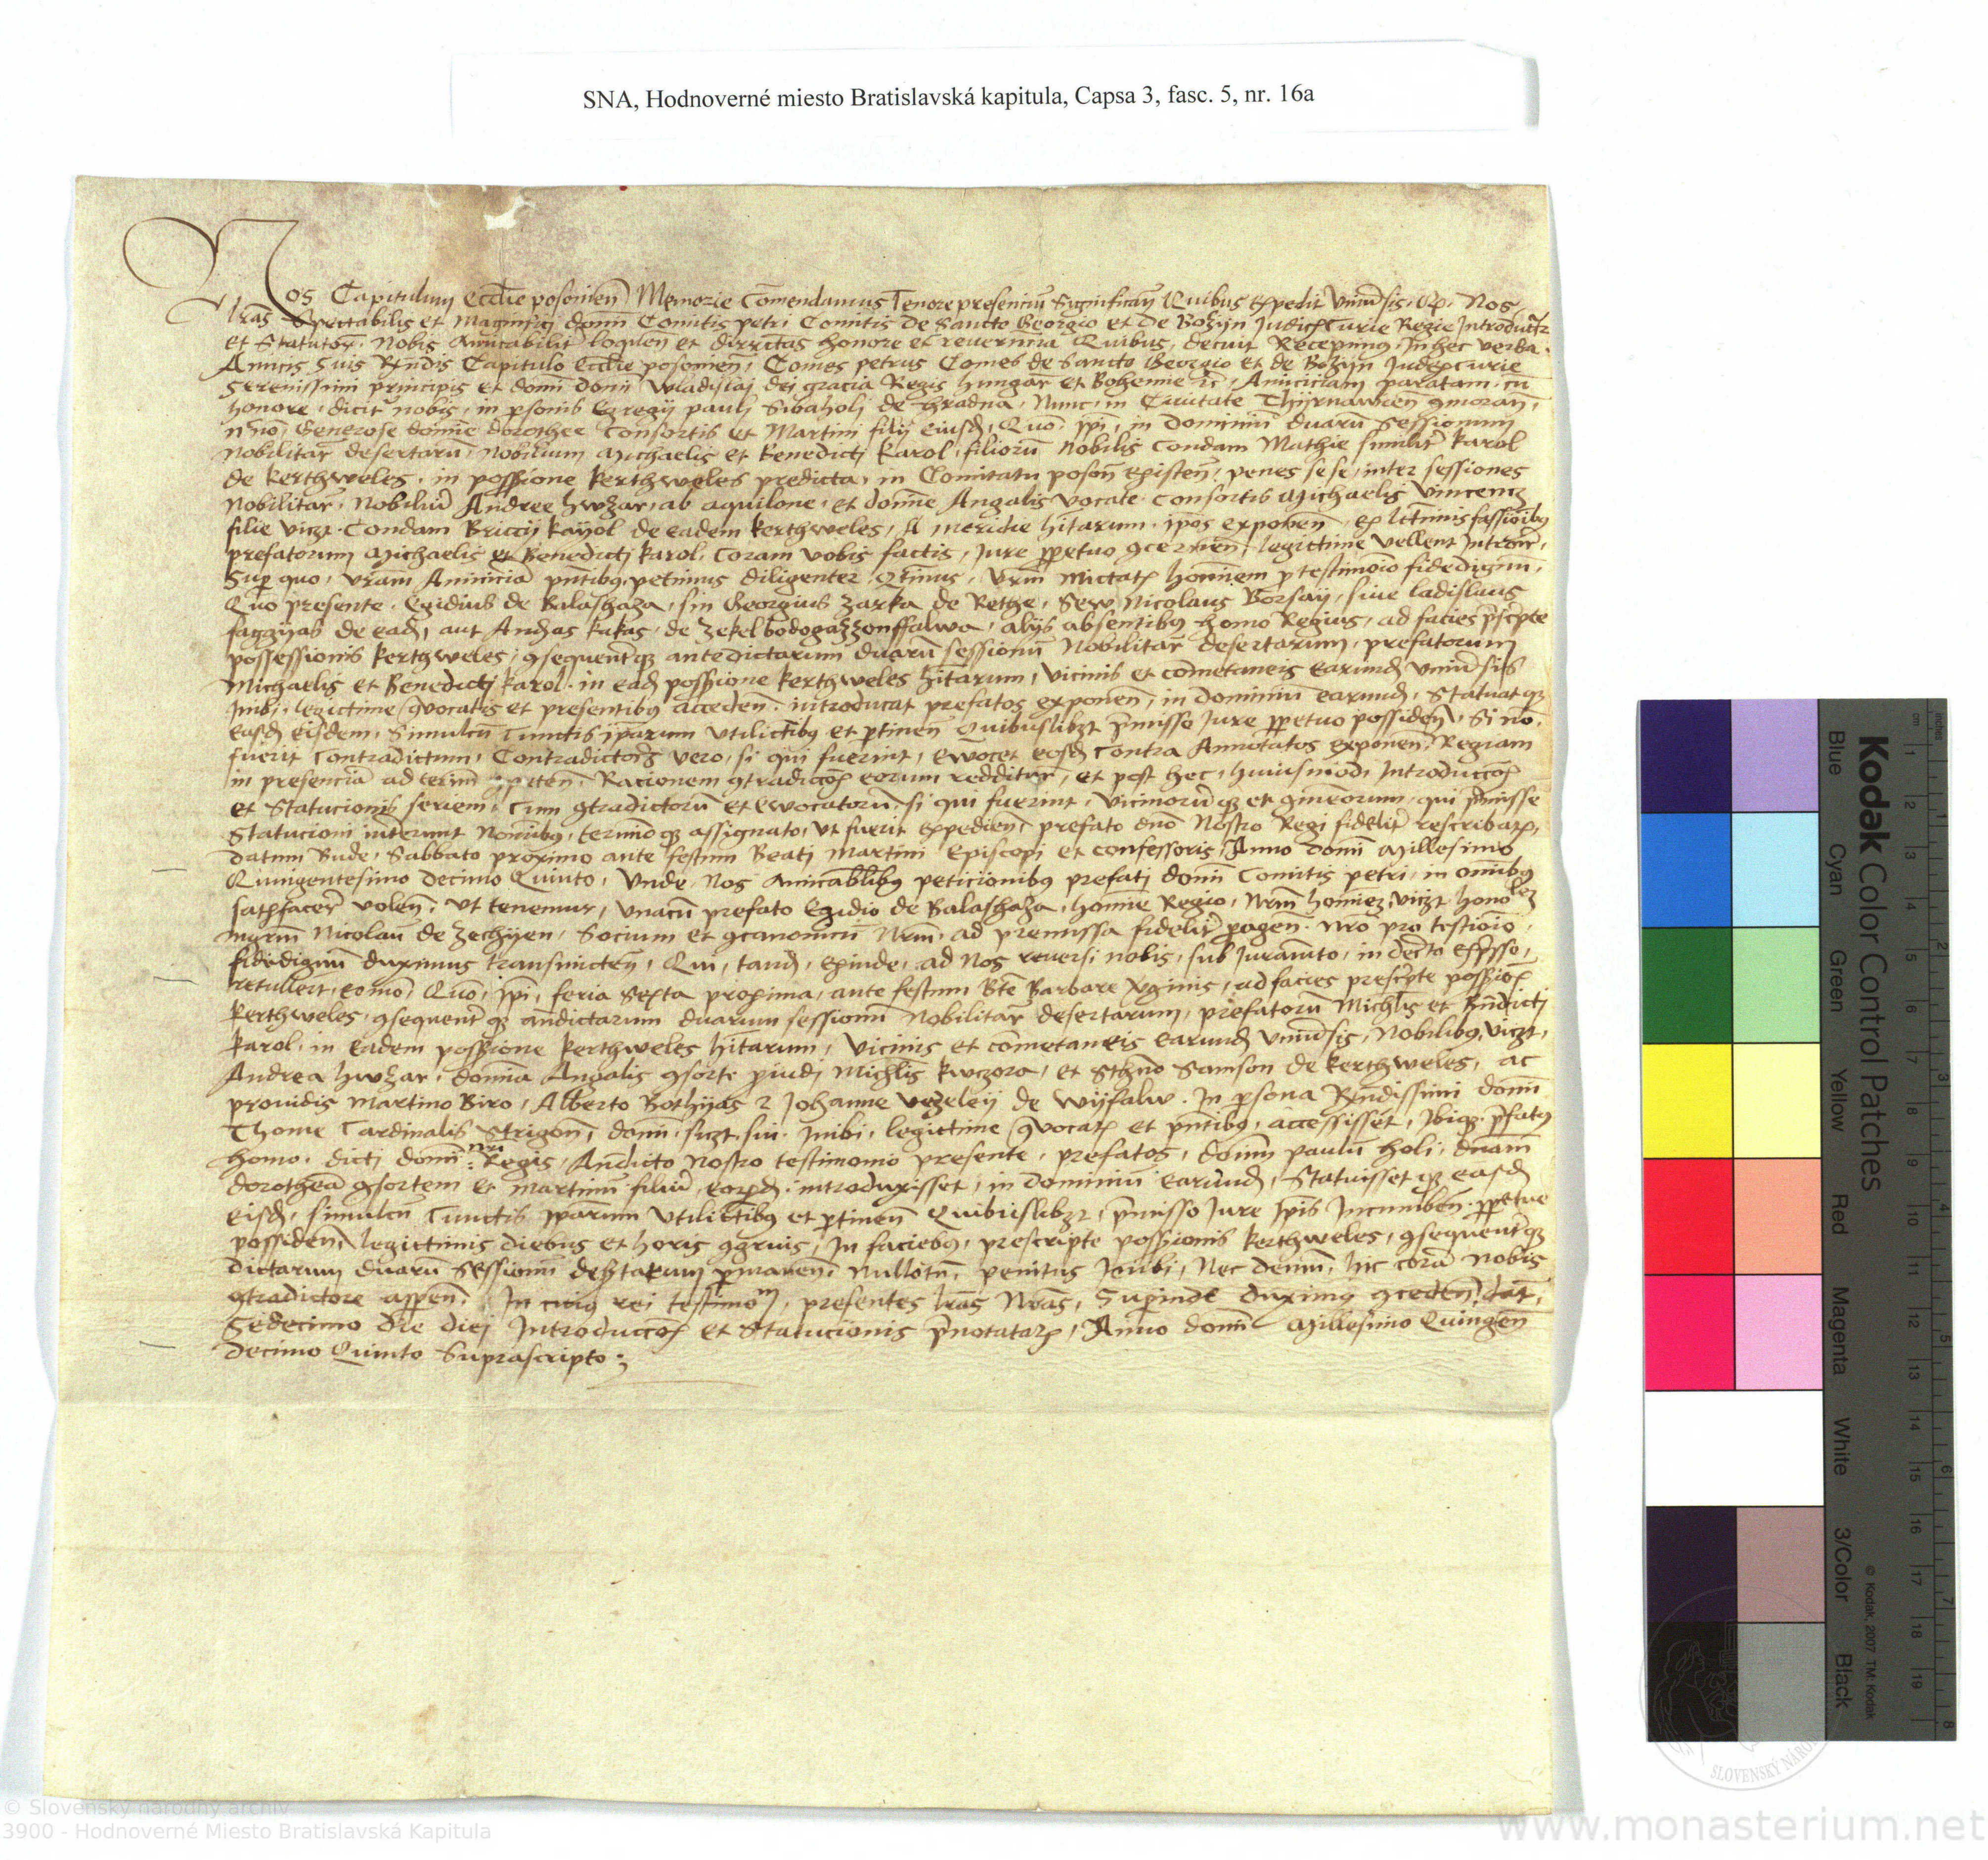 SNA, Hodnoverné miesto Bratislavská kapitula, Capsa 3, fasc. 5, nr. 16a
Nos Capitulum Eccl̄ie posonien̄ Memorie Com̄endamus Tenore presenciū Significan̄ Quibus expedit Uniu͞sis Nos
l͞ras Spectabilis et Magnifici domī Comitis petri Comitis de Sancto Georgio et de Bozyn Judicis Curie Regie
et Statutor̄. Nobis Amicabilit̄ loquen̄ et directas honore et reverencia Quibus decuit Recepimus In hec verba.
Amicis Suis R͞ndis Capitulo Eccl̄ie posonien̄, Comes petrus Comes de Sancto Georgio et de Bozyn Judex curie
Serenissimi principis et domī domī Wladislaj dei gracia Regis hungar̄ et Bohemie ꝛc, Amiciciam paratam cū
honore, dicit̄ nobis, in p̄sonis Egregij paulj Sibaholj de hradna, Nunc in Civitate Thyrnawien̄ ꝯmoran̄,
n͞no Generose dom͞e dorothee Consortis et Martini filij Eiusd̄, Quō ip̄i, in Dominiū duarū Sessionum
Nobilitar̄ desertarū, Nobilium Michaelis et Benedictj Karol, filiorū Nobilis Condam Mathie similit̄ Karol
de kerthweles, in possessione kerthweles predicta, in Comitatu poson̄ existen̄, penes sese, inter sessiones
Nobilitar̄, Nobiliū Andree hwzar, ab aquilone, et dom͞e Angalis vocate Consortis Michaelis Vincencz
filie vicꝫ Condam Briccij kayol de eadem kerthweles, A meridie h͞itarum ip̄os exponen̄ ex l͞ttimis fassioībꝯ
prefatorum Michaelis et Benedictj karol, Coram vobis factis, Jure p̄petuo ꝯcernen̄ legittime vellent Introir̄,
Sup̄ quo, vr̄am Amiciciā p͞ntibꝯ petimus diligenter q͞tinus, vr̄m Mictatis hom͞iem p̄ testimōio fidedignū,
Quo presente, Egidius de Balashaza, sin Georgius zarka de Rethe, Sew Nicolaus Borsay, sive ladislaus
faggyas de ead̄, aut And̄as kakas, de zekel bodogazzonffalwa, alijs absentibꝯ homo Regius, ad facies p͞scpte
possessionis kerthweles, ꝯsequent̄qꝫ antedictarum duarū sessionū Nobilitar̄ desertarum, prefatorum
Michaelis et Benedictj karol in ead̄ possessione kerthweles h͞itarum, Vicinis et com͞etaneis earund̄ Uniu͞sis
Inibi, legittime ꝯvocatis et presentibꝯ acceden̄, introducat prefatos exponen̄, in Dominiū earund̄, Statuatqꝫ
easd̄ eisdem, Simulcū Cunctis ip̄arum Utilitatibꝯ et p̄tinen̄ Quibuslibꝫ p͞misso Jure p̄petuo possiden̄, Si nō
fuerit Contradictum, Contradictores vero, si qui fuerint, Ewocet eosd̄ Contra Annotatos exponen̄ Regiam
in presenciā ad termī ꝯpeten̄, Racionem ꝯtradiccōis eorum redditur̄, et post hec, huiusmodi Introduccōis
et Statucionis seriem, Cum ꝯtradictorū et Ewocatorū, si qui fuerint, Vicinorū qꝫ et ꝯmetaneorum, qui p͞misse
Statucioni intererunt Nom͞ibꝯ, termīo qꝫ assignato, ut fuerit expedien̄ prefato dn̄o Nostro Regi fidelit̄ rescribatis,
datum Bude, Sabbato proximo ante festum Beati Martini Episcopi et confessoris, Anno domī Millesimo
Quingentesimo decimo Quinto, Unde Nos Amicabilibꝯ peticionibꝯ prefatj domī Comitis petri, in om͞ibꝯ
satisfacer̄ volen̄, ut tenemur, unacū prefato Egidio de Balashaza, hom͞ie Regio, Nr̄m hom͞iem vicꝫ honolem
mgr̄m Nicolaū de zechyen, Socium et ꝯcanonicū Nr̄m ad premissa fidelit̄ p̄agen̄ Nr̄o pro testiōio,
fidedignū duximus transmicten̄, Qui, tand̄, exinde, ad Nos reversi nobis, sub Juramēto, in dec͞to Exp̄sso,
retuller̄t, eomō, Quō, ip̄i, feria Sexta proxima, ante festum B͞te Barbare v̄ginis, ad facies presc͞pte possessionis
kerthweles, ꝯsequent̄ qꝫ an͞dictarum duarum sessionū Nobilitar̄ desertarum, prefatorū Mich͞lis et B͞ndicti
karol, in Eadem possessione kerthweles h͞itarum, Vicinis et com͞etaneis earund̄ Uniu͞sis, Nobilibꝯ, vicꝫ,
Andrea hwzar, domīa Angalis ꝯsorte p̄vidi Mich͞lis kwczora, et Steph͞no Samson de kerthweles, ac
providis Martino Biro, Alberto Bothyas ꝛ Johanne Vezeley de Wyfalw. In p̄sona R͞ndissimi domī
Thome Cardinalis Strigon̄, domī, scꝫ, sui. Inibi, legittime ꝯvocatis et p͞ntibꝯ, accessisset, Ibiqꝫ p͞fatꝯ
homo, dicti domī nr̄i Regis, An͞dicto Nostro testimonio presente, prefatos, domī paulū holi, dn̄am
dorotheā ꝯsortem et Martinū filiū eorūd̄, introduxisset, in dominiū earund̄, Statuisset qꝫ easd̄
eisd̄, simulcū Cunctis ip̄arum Utilitatibꝯ et p̄tinen̄ Quibuslibꝫ, p͞misso Jure ip̄is Incumben̄ p̄petue
possiden̄, legittimis diebus et horis ꝯgruis, In faciebꝯ, prescripte possessionis kerthweles, ꝯsequent̄qꝫ
dictarum duarū Sessionū desertarum p̄manen̄, Nullotn̄, penitus Inibi, Nec demū, hic corā Nobis
ꝯtradictore apparen̄. In cuiꝯ rei testimoⁿᵐ, presentes l͞ras Nr̄as, Superinde duximꝯ ꝯceden̄, dat̄,
Sedecimo die diej Introduccōis et Statucionis p͞notatarum, Anno domī Millesimo Quingen̄
decimo Quinto Suprascripto
Kodak Color Control Patches
Blue Cyan Green Yellow Red Magenta White 3/Color Black
© Kodak, 2007 TM: Kodak
cm 1 2 3 4 5 6 7 8 9 10 11 12 13 14 15 16 17 18 19
inches 1 2 3 4 5 6 7 8
SLOVENSKÝ NÁRO
© Slovenský národný archív
3900 - Hodnoverné Miesto Bratislavská Kapitula
www.monasterium.net